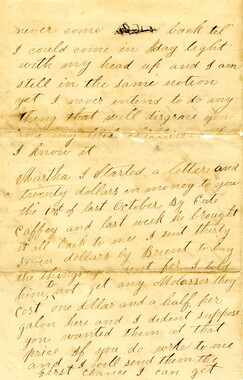 never come back til
I could come in day light
with my head up and I am
still in the same notion
yet I never intend to do any
thing that will disgrace you
and my
I know it
Martha I Started a letter and
twenty dollars in money to you
the 1st of last October By Cute
Caffey and last week he brought
it all back to me I sent thirty
seven dollars by Brient to buy
the things you sent for I told
him to not get any Molasses they
Cost one dollar and a half per
galon here and I dident suppose
you wanted them at that
price If you do write to me
and I will send them the
first chance I can get